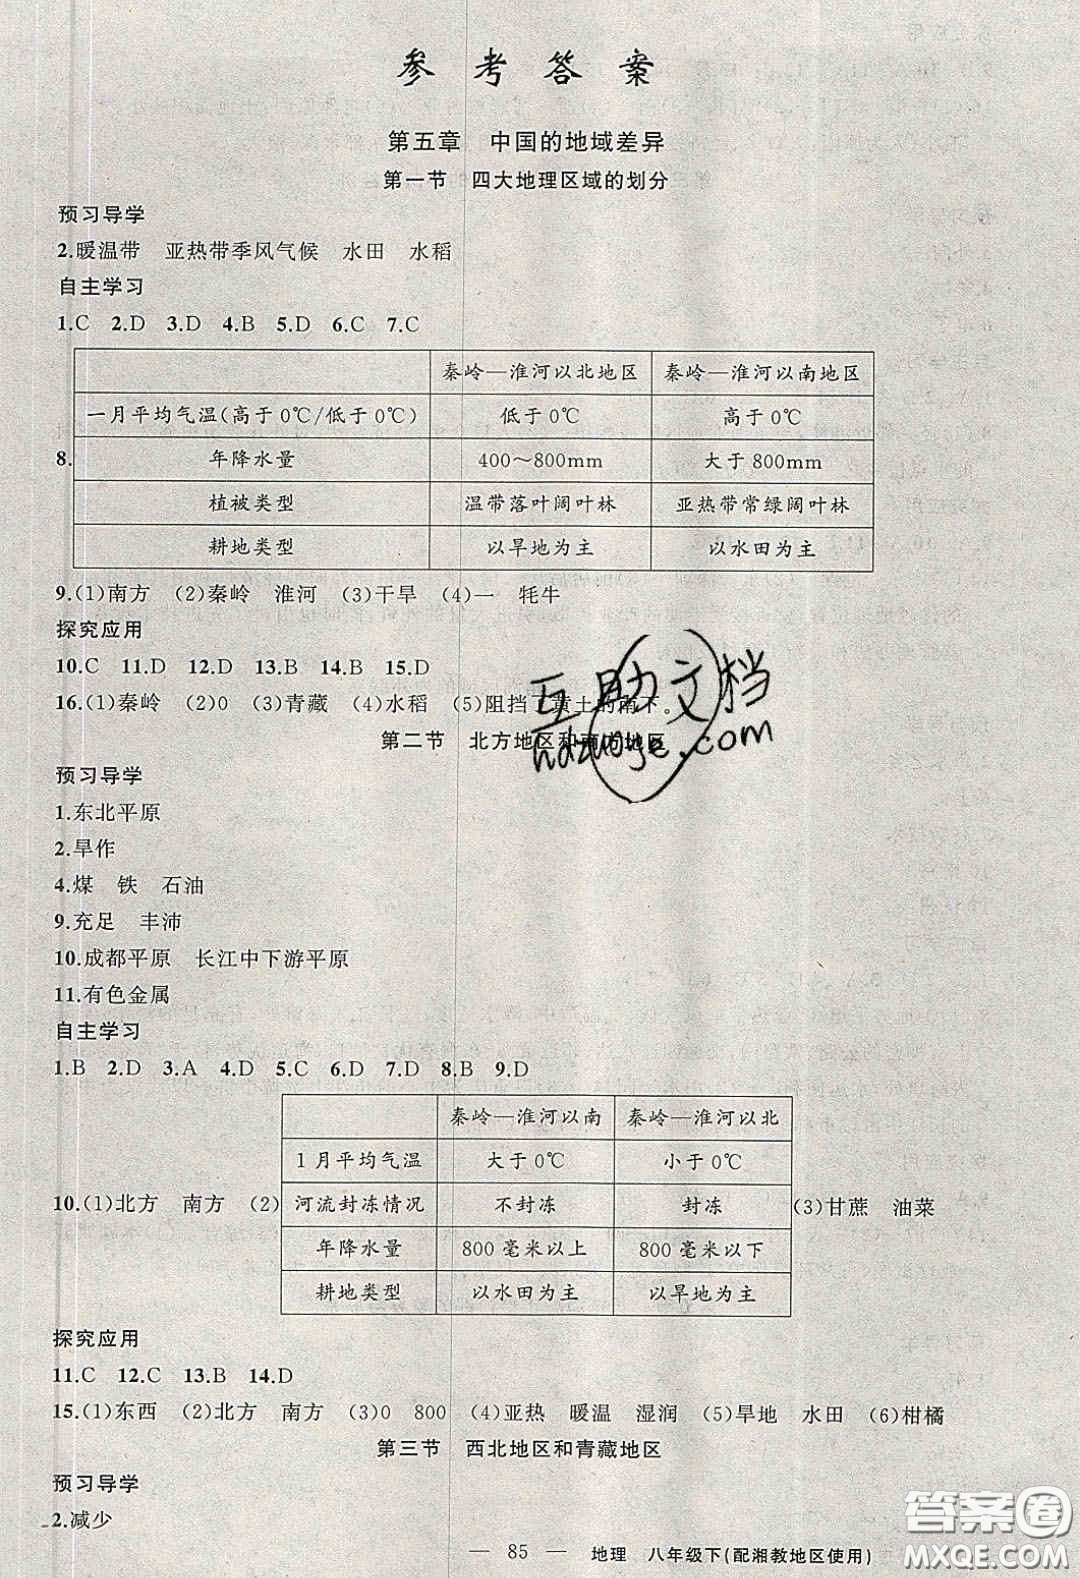 参考答案
第五章 中国的地域差异
第一节 四大地理区域的划分
预习导学
2.暖温带 亚热带季风气候 水田 水稻
自主学习
1.C 2.D 3.D 4.B 5.D 6.C 7.C
秦岭—淮河以北地区 秦岭—淮河以南地区
一月平均气温(高于0℃/低于0℃) 低于0℃ 高于0℃
8. 年降水量 400～800mm 大于800mm
植被类型 温带落叶阔叶林 亚热带常绿阔叶林
耕地类型 以旱地为主 以水田为主
9.(1)南方 (2)秦岭 淮河 (3)干旱 (4)一 牦牛
探究应用
10.C 11.D 12.D 13.B 14.B 15.D
16.(1)秦岭 (2)0 (3)青藏 (4)水稻 (5)阻挡了黄土的南下。
互助文档
hdzuoye.com
第二节 北方地区和南方地区
预习导学
1.东北平原
2.旱作
4.煤 铁 石油
9.充足 丰沛
10.成都平原 长江中下游平原
11.有色金属
自主学习
1.B 2.D 3.A 4.D 5.C 6.D 7.D 8.B 9.D
秦岭—淮河以南 秦岭—淮河以北
1月平均气温 大于0℃ 小于0℃
10.(1)北方 南方 (2) 河流封冻情况 不封冻 封冻 (3)甘蔗 油菜
年降水量 800毫米以上 800毫米以下
耕地类型 以水田为主 以旱地为主
探究应用
11.C 12.C 13.B 14.D
15.(1)东西 (2)北方 南方 (3)0 800 (4)亚热 暖温 湿润 (5)旱地 水田 (6)柑橘
第三节 西北地区和青藏地区
预习导学
2.减少
— 85 — 地理 八年级下(配湘教地区使用)
答案圈
MXQE.COM